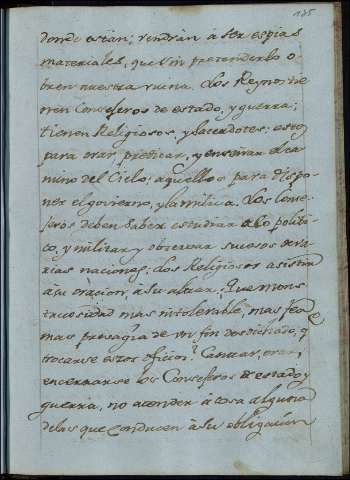 185
donde están; vendrán à ser espias
materiales, que sin pretenderlo o-
bren nuestra ruina. Los Reynos tie
nen Consejeros de estado, y guerra;
tienen Religiosos, y sacerdotes; estos
para orar, predicar, y enseñar el ca
mino del Cielo; aquellos para dispo
ner el govierno, y la milicia. Los Conse
jeros deben saber estudiar à lo politi
co, y militar, y observar sucesos de va
rias naciones; los Religiosos asistir
à su oracion, à su altar. Que mons
truosidad mas intolerable, mas fea
mas presagia de un fin desdichado, q
trocarse estos oficios? Cantar, orar,
encerrarse los Consejeros de estado, y
guerra, no atender à cosa alguna
de las que conducen à su obligacion